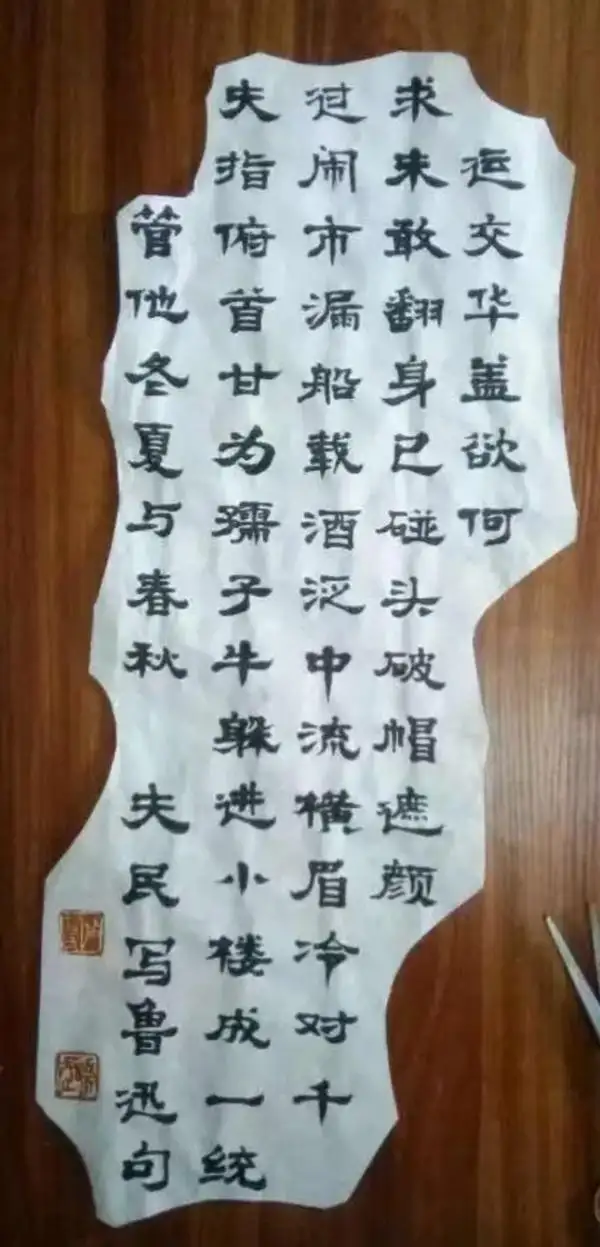 运交华盖欲何
求未敢翻身已碰头破帽遮颜
过闹市漏船载酒泛中流横眉冷对千
夫指俯首甘为孺子牛躲进小楼成一统
管他冬夏与春秋 夫民写鲁迅句